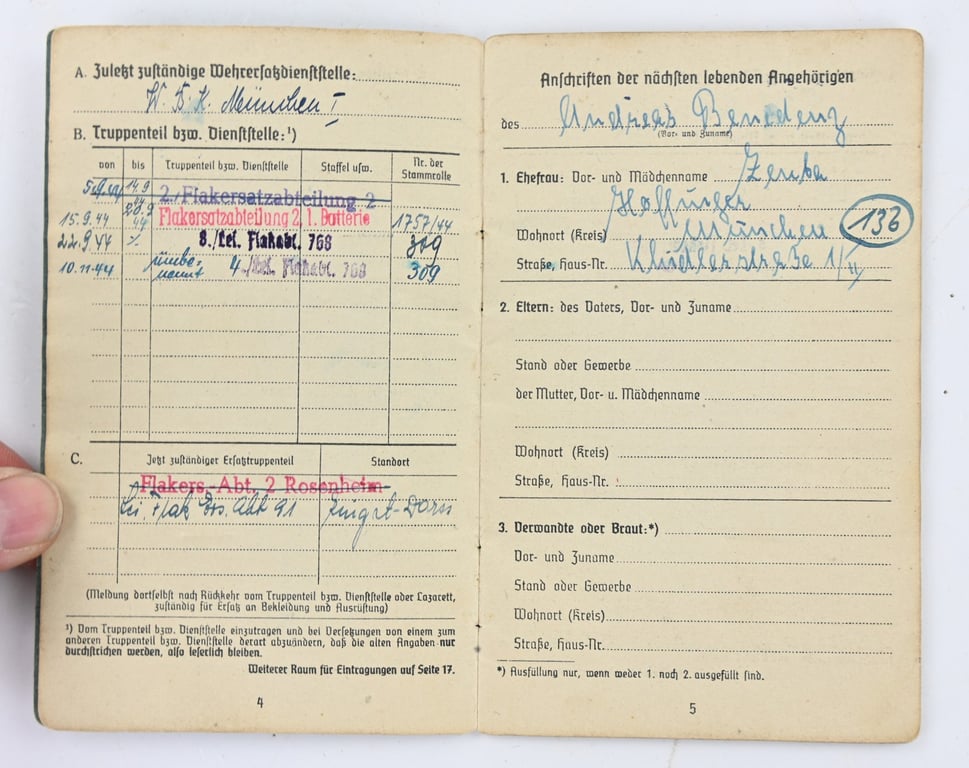 A. Zuletzt zuständige Wehrersatzdienststelle:
W. B. K. München I
B. Truppenteil bzw. Dienststelle:¹)
von bis Truppenteil bzw. Dienststelle Staffel usw. Nr. der Stammrolle
14.9 44 2./Flakersatzabteilung 2
15.9.44 28.9 44 Flakersatzabteilung 2, 1. Batterie 1757/44
22.9.44 8./lei. Flakabt. 768 309
10.11.44 umbenannt 4./lei. Flakabt. 768 309
C. Jetzt zuständiger Ersatztruppenteil Standort
Flakers.-Abt. 2 Rosenheim
Lei. Flak Ers. Abt 91 Zingst-Darss
(Meldung dortselbst nach Rückkehr vom Truppenteil bzw. Dienststelle oder Lazarett,
zuständig für Ersatz an Bekleidung und Ausrüstung)
¹) Vom Truppenteil bzw. Dienststelle einzutragen und bei Versetzungen von einem zum
anderen Truppenteil bzw. Dienststelle derart abzuändern, daß die alten Angaben nur
durchstrichen werden, also leserlich bleiben.
Weiterer Raum für Eintragungen auf Seite 17.
4
Anschriften der nächsten lebenden Angehörigen
des Andreas
(Vor- und Zuname)
1. Ehefrau: Vor- und Mädchenname Zenta
Wohnort (Kreis) München 136
Straße, Haus-Nr. 1/II
2. Eltern: des Vaters, Vor- und Zuname
Stand oder Gewerbe
der Mutter, Vor- u. Mädchenname
Wohnort (Kreis)
Straße, Haus-Nr.
3. Verwandte oder Braut:*)
Vor- und Zuname
Stand oder Gewerbe
Wohnort (Kreis)
Straße, Haus-Nr.
*) Ausfüllung nur, wenn weder 1. noch 2. ausgefüllt sind.
5